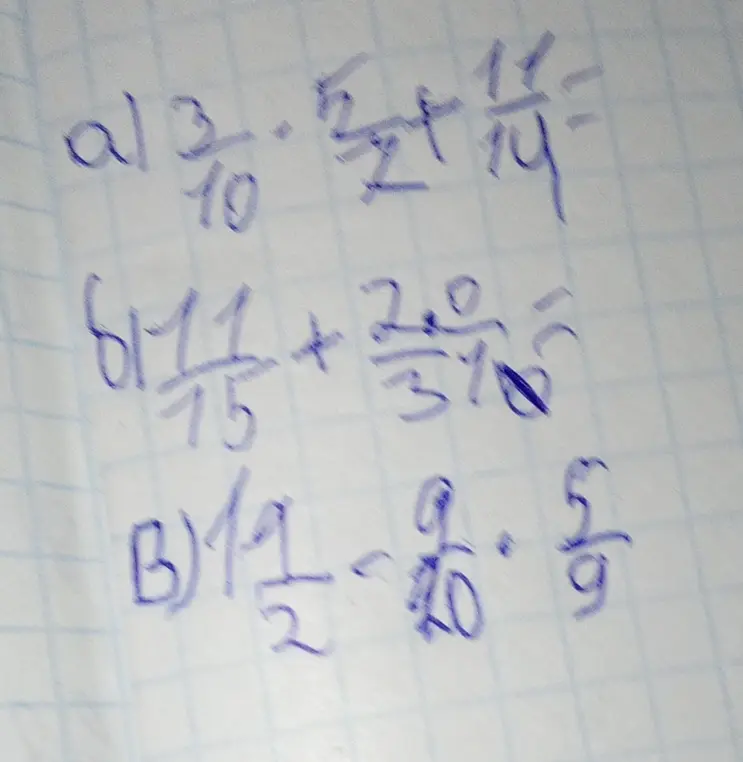 а) 3/10 · 5/7 + 11/14 =
б) 11/15 + 2/3 · 0/10 =
в) 1 1/2 - 9/20 · 5/9